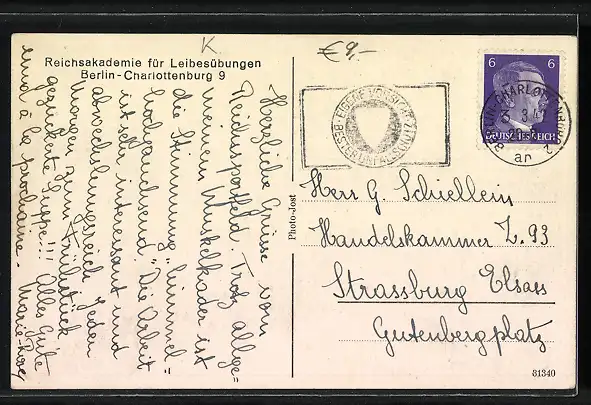 K
€9,-
Reichsakademie für Leibesübungen
Berlin-Charlottenburg 9
Herzliche Grüsse vom
Reichssportfeld. Trotz allge=
meinem Muskelkader ist
die Stimmung „himmel=
hochjauchzend". Die Arbeit
ist sehr interessant und
abwechslungsreich. Jeden
Morgen zum Frühstück
gezuckerte Suppe!!! Alles Gute
und à la prochaine. Marie-Rose
Photo-Jost
EIGENE VORSICHT
BESTER UNFALLSCHUTZ
6 6
DEUTSCHES REICH
BERLIN-CHARLOTTENBURG 2
ar
Herr G. Schiellein
Handelskammer Z. 93
Strassburg Elsass
Gutenbergplatz
81340